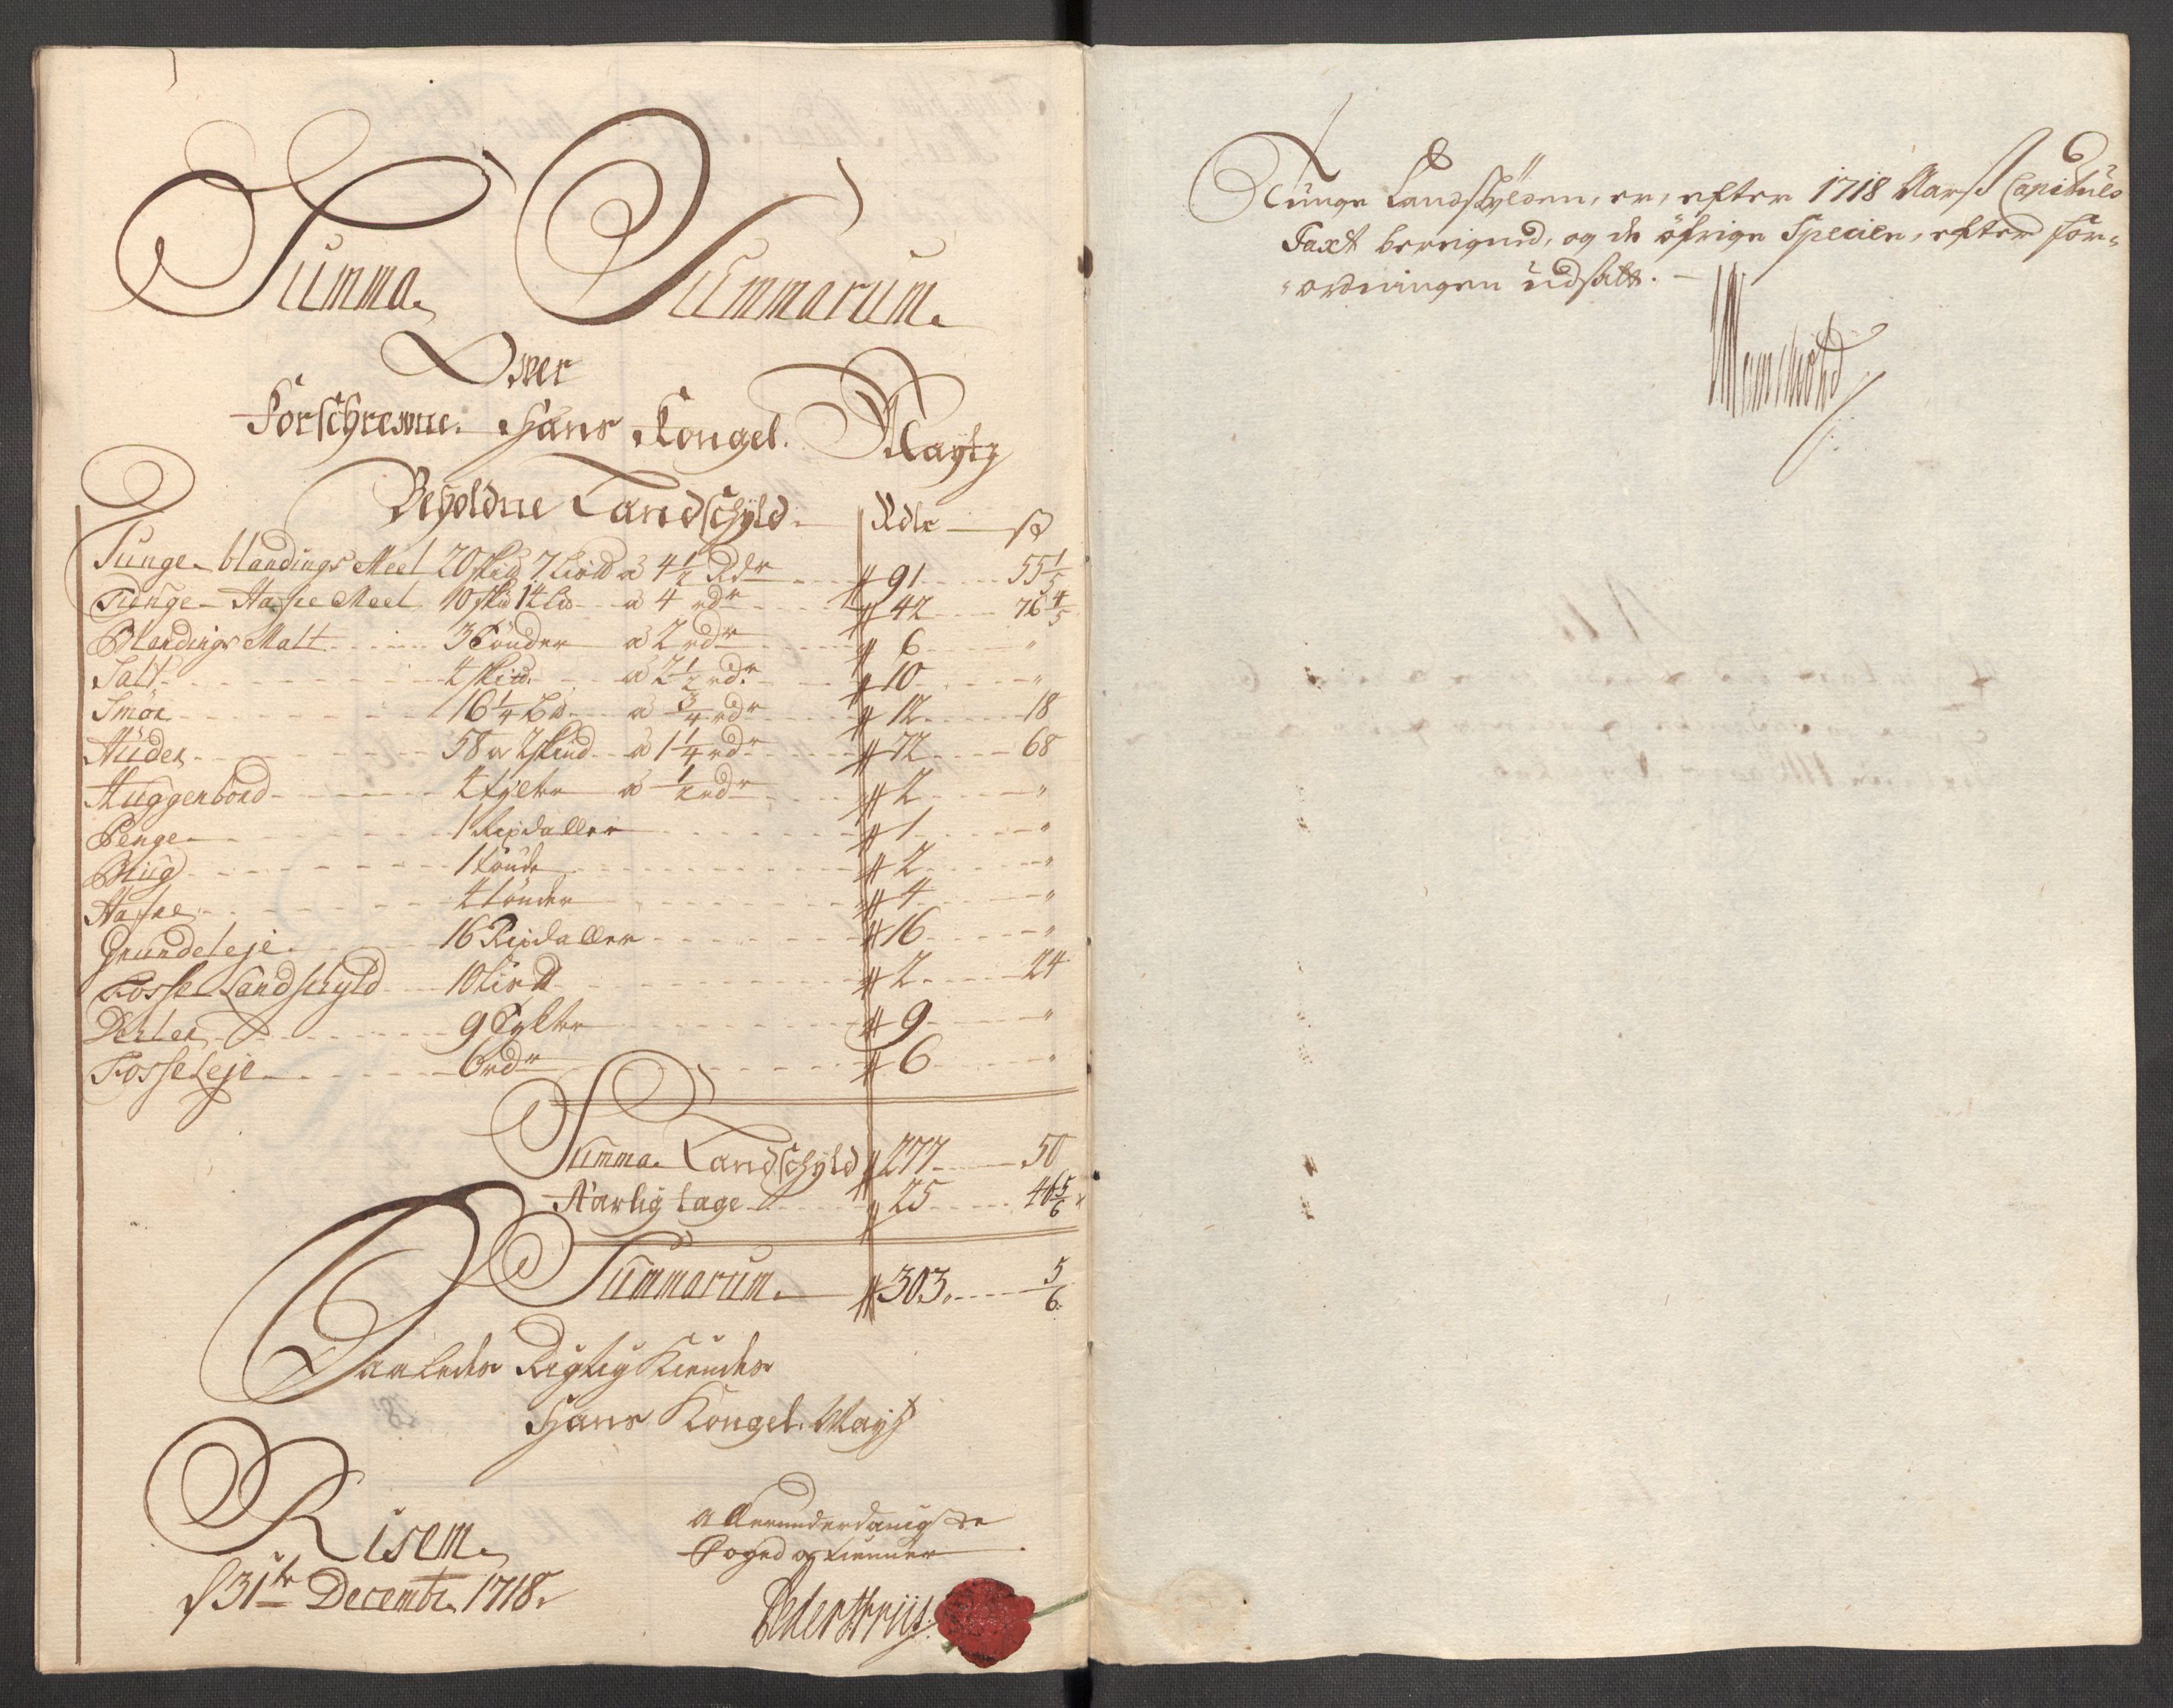 Summa Summarum
Over
Forschrevne Hans Kongel. Mayts
Beholdne Landschyld. Rdlr ß
Tunge blandings Meel 20 skid 7 lis a 4 1/2 Rdr 91 55 1/5
Tunge Hafre Meel 10 skid 14 lis a 4 rdr 42 76 4/5
Blandings Malt 3 Tønder a 2 rdr 6 "
Salt 4 skid. a 2 1/2 rdr 10 "
Smør 16 1/4 Lis a 3/4 rdr 12 18
Huder 58 2 skind a 1 1/4 rdr 72 68
Huggenbord 4 tylter a 1/2 rdr 2 "
Penge 1 Rixdaller 1 "
Biug 1 tønde 2 "
Hafre 4 tønder 4 "
Grundeleje 16 Rixdaller 16 "
Fosse Landschyld 2 24
Dehler 9 Tylter 9 "
Fosseleje 6 rdr 6 "
Summa Landschyld 277 50
Aarlig tage 25 46 5/6
Summarum 303 5/6
Saaledes Rigtig Kiendes
Hans Kongel. Mayt
Risem
d 31te Decembr. 1718.
Allerunderdanigste
Foged og tienner
Peder Friis
Tunge Landschylden, er, efter 1718 Aarß Capituls
Taxt beregned, og de øfrige Specier, efter for-
ordningen udsatt.